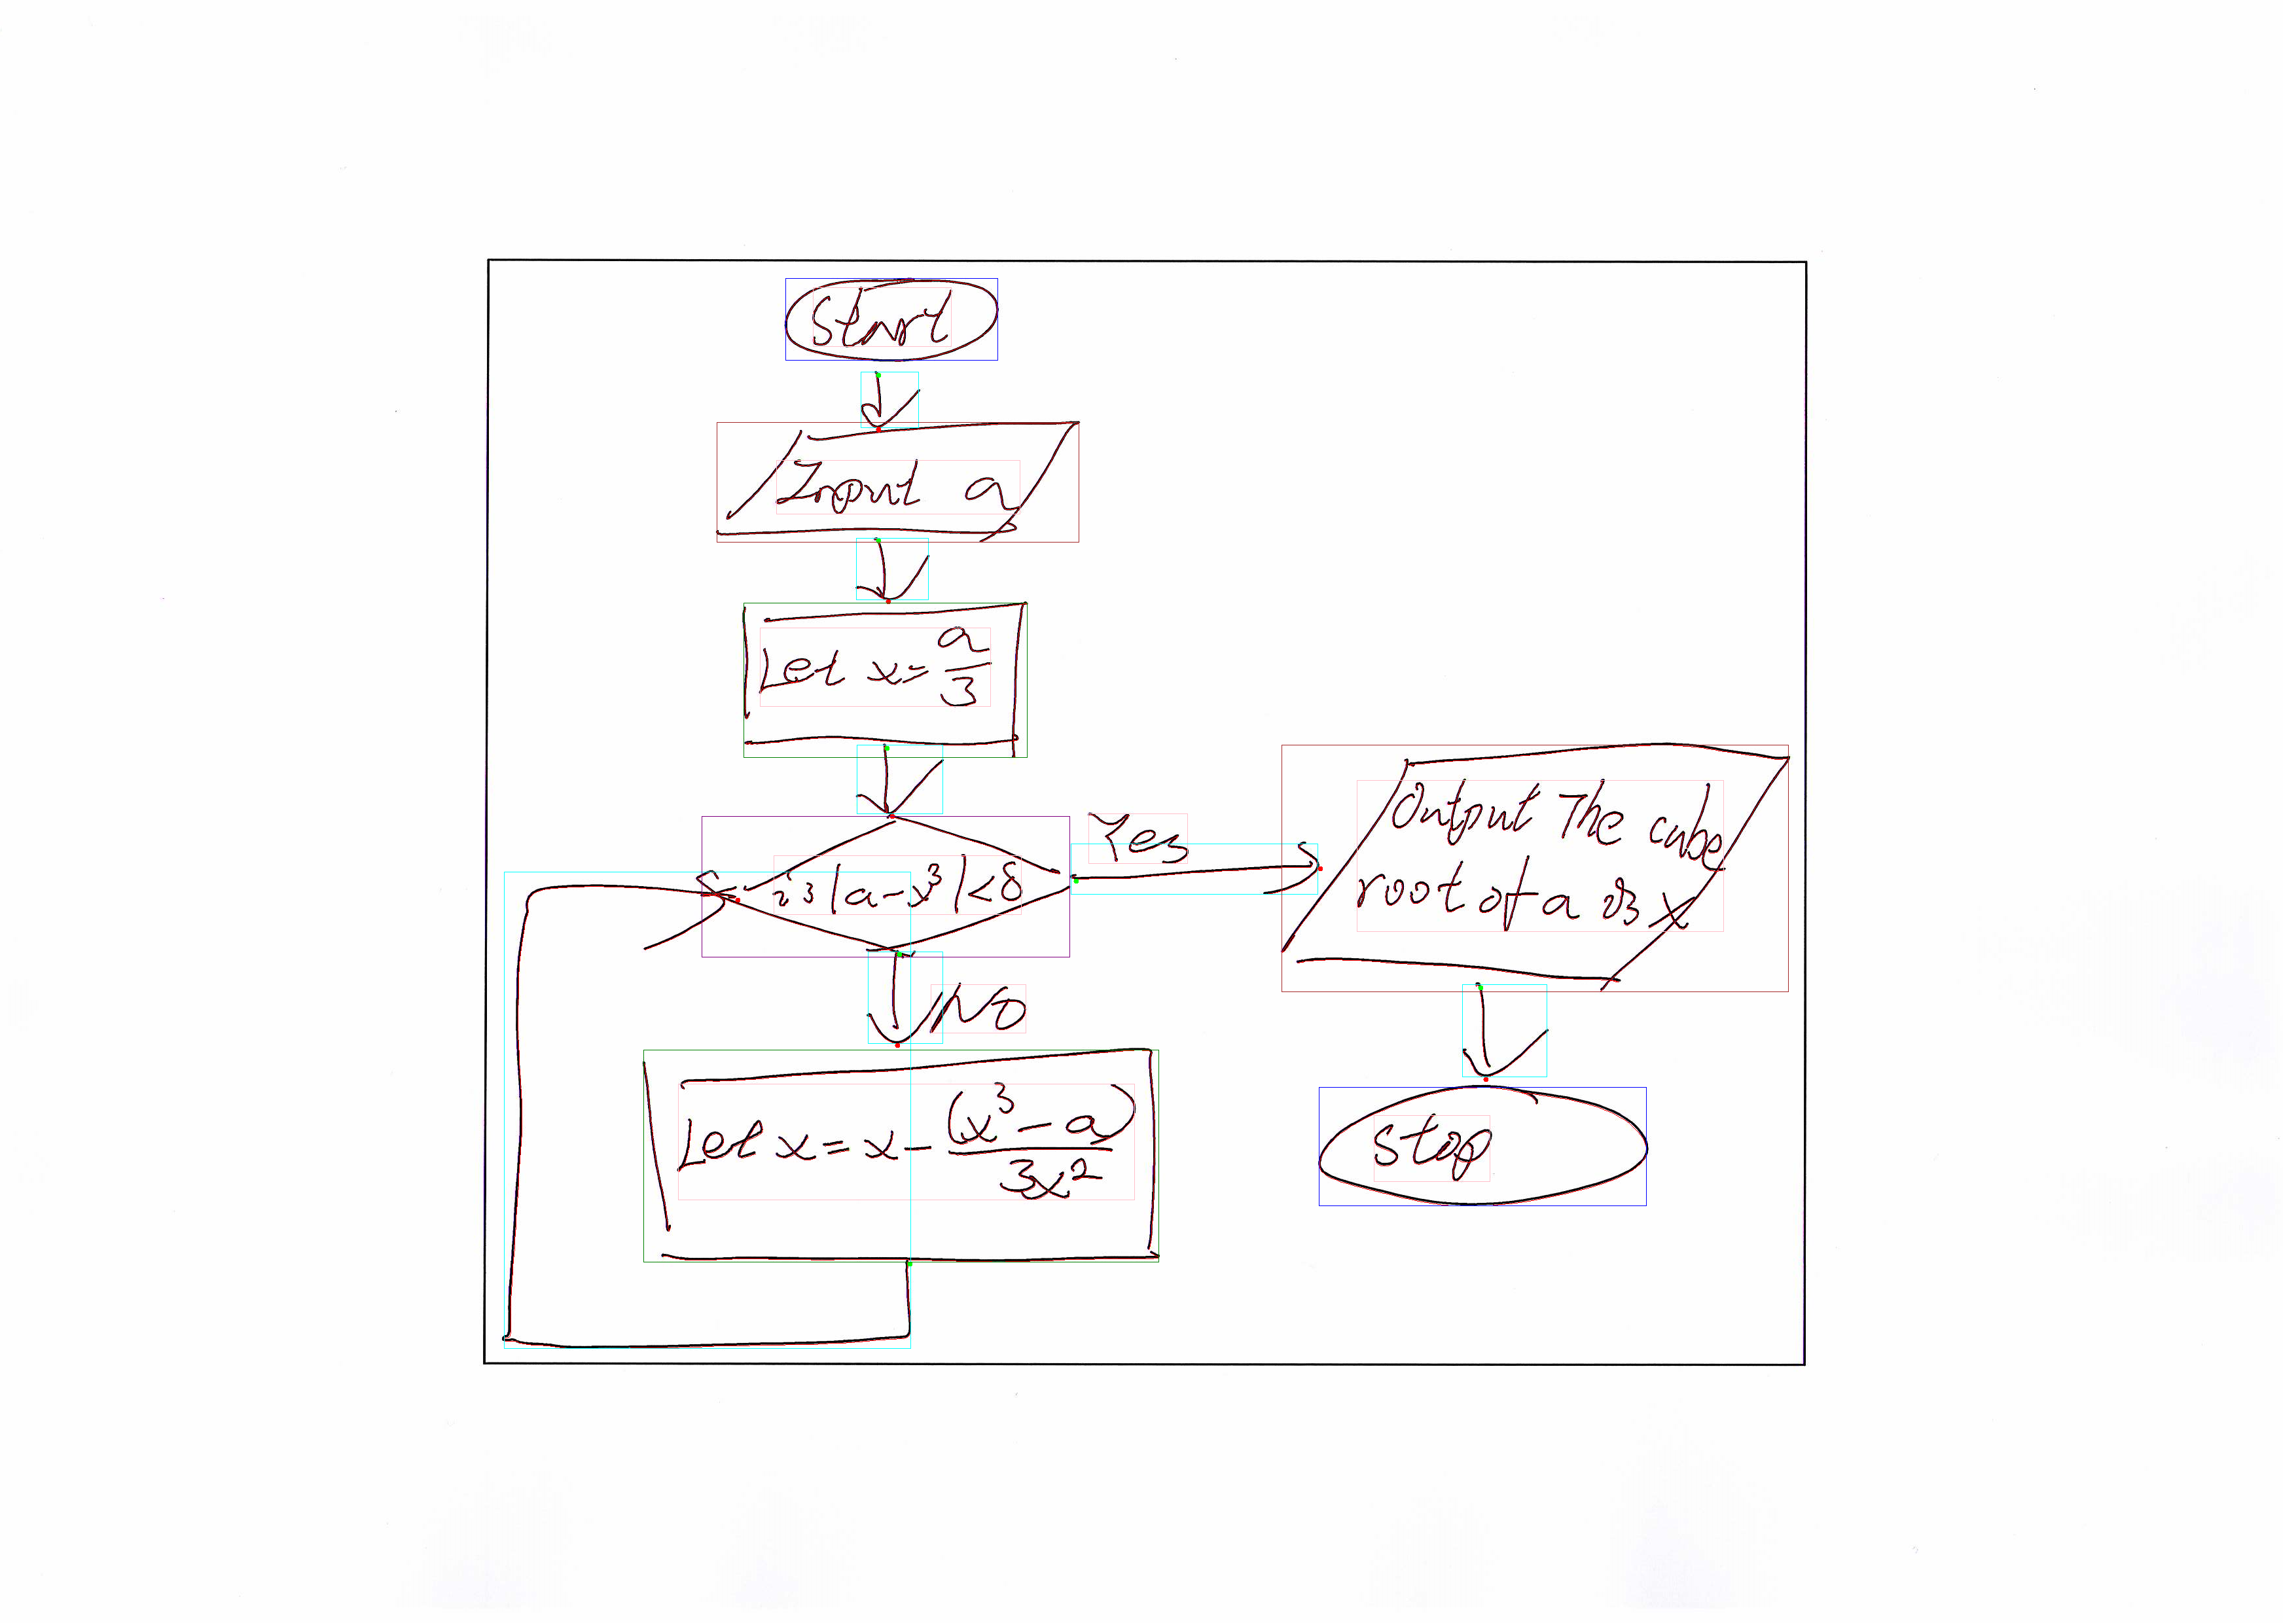 Start
Input a
Let x = a/3
is |a-x³|<δ
Yes
Output The cube
root of a is x
No
Let x = x - (x³ - a)/3x²
stop